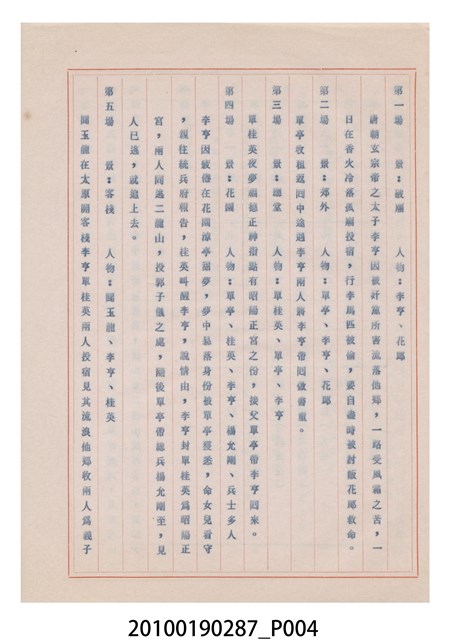 第一場　景：破廟　人物：李亨、花郎
唐朝玄宗帝之太子李亨因被奸黨所害流落他鄉，一路受風霜之苦，一
日在香火冷落孤廟投宿，行李馬匹被偷，要自盡時被討飯花郎救命。
第二場　景：郊外　人物：單亭、李亨、花郎
單亭收租返回中途遇李亨兩人將李亨帶回做書童。
第三場　景：繡堂　人物：單桂英、單亭、李亨
單桂英夜夢福德正神指點有昭陽正宮之份，後父單亭帶李亨回來。
第四場　景：花園　人物：單亭、桂英、李亨、楊允剛、兵士多人
李亨因疲倦在花園涼亭困夢，夢中暴落身份被單亭獲悉，命女兒看守
，親往統兵府報告，桂英叫醒李亨，說情由，李亨封單桂英為昭陽正
宮，兩人同逃二龍山，投郭子儀之處，隨後單亭帶總兵楊允剛至，見
人已逃，就追上去。
第五場　景：客棧　人物：關玉龍、李亨、桂英
關玉龍在太原開客棧李亨單桂英兩人投宿見其流浪他鄉收兩人為義子
20100190287_P004